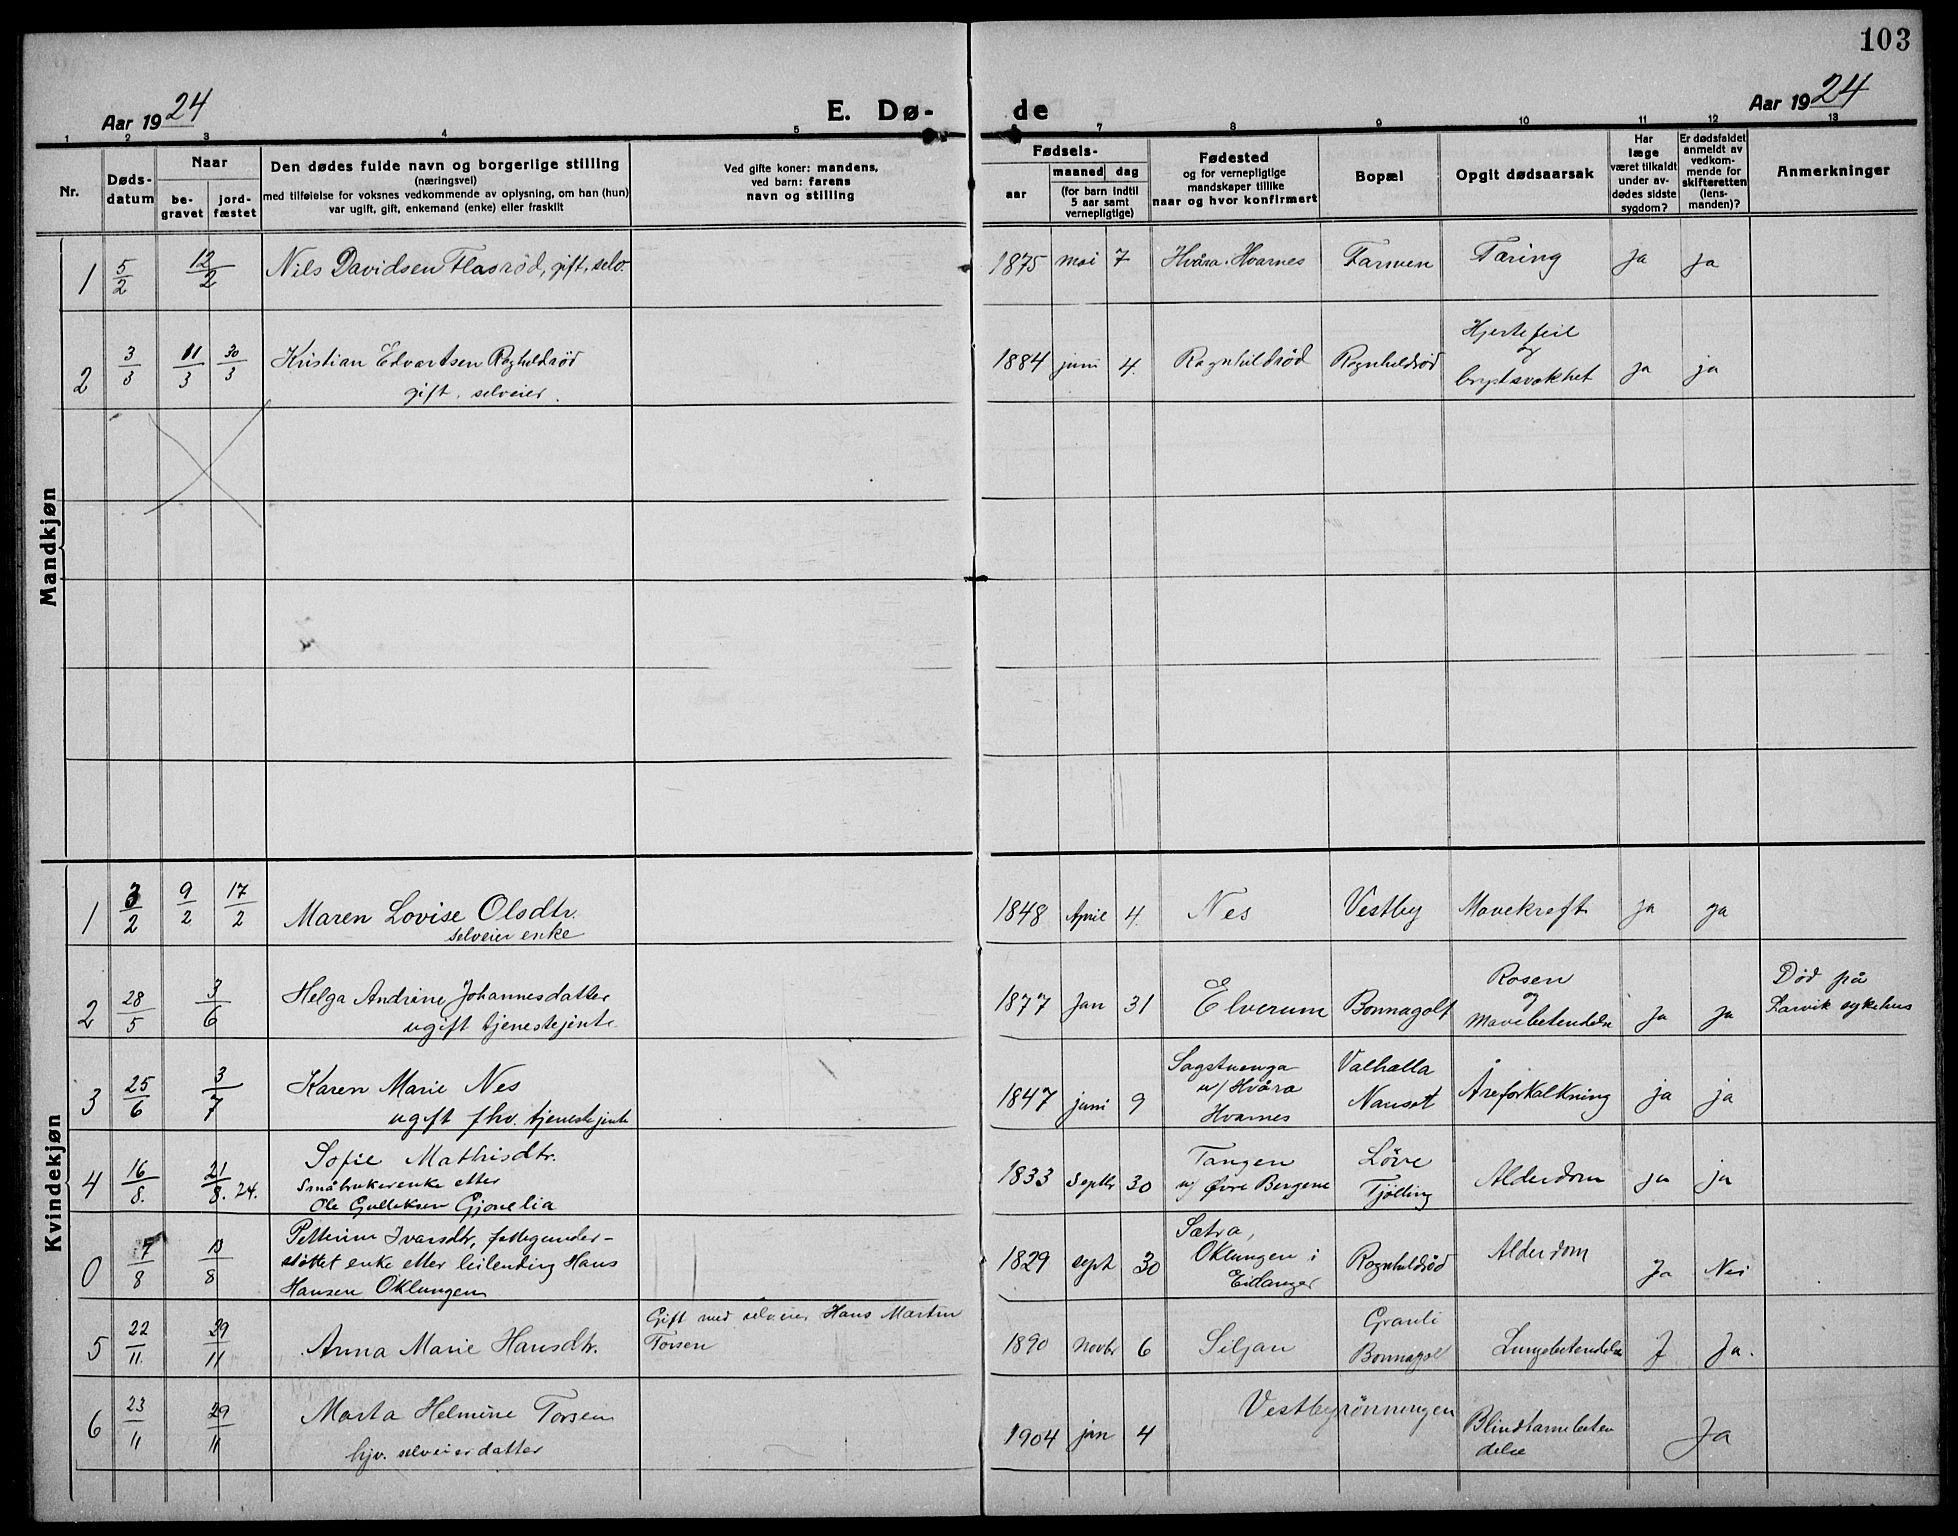 103
Aar 1924
E. Dø-
de
Aar 1924
1 2 3 4 5 7 8 9 10 11 12 13
Nr.
Døds-
datum
Naar
be-
gravet
jord-
fæstet
Den dødes fulde navn og borgerlige stilling
(næringsvei)
med tilføielse for voksnes vedkommende av oplysning, om han (hun)
var ugift, gift, enkemand (enke) eller fraskilt
Ved gifte koner: mandens,
ved barn: farens
navn og stilling
Fødsels-
aar
maaned dag
(for barn indtil
5 aar samt
vernepligtige)
Fødested
og for vernepligtige
mandskaper tillike
naar og hvor konfirmert
Bopæl
Opgit dødsaarsak
Har
læge
været tilkaldt
under av-
dødes sidste
sygdom?
Er dødsfaldet
anmeldt av
vedkom-
mende for
skifteretten
(lens-
manden)?
Anmerkninger
Mandkjøn
1 5/2 12/2 Nils Davidsen Flasrød, gift, selv. 1875 mai 7 Hvåra. Hvarnes Farmen Tæring ja ja
2 3/3 11/3 30/3 Kristian Edvartsen Ragnhildsröd
gift, selveier.
1884 juni 4. Ragnhildsröd Ragnhildsröd Hjertefeil
og
brystsvakhet
ja ja
Kvindekjøn
1 3/2 9/2 17/2 Maren Lovise Olsdtr.
selveier enke
1848 April 4. Nes Vestby Mavekreft ja ja
2 28/5 3/6 Helga Andrine Johannesdatter
ugift tjenestejente
1877 Jan 31 Elverum Bonnagolt Rosen
og
Mavebetendelse
Ja Ja
Död på
Larvik sykehus
3 25/6 3/7 Karen Marie Nes
ugift fhv. tjenestejente
1847 juni 9 Sagstuenga
u/ Hvåra
Hvarnes
Valhalla
Nanset
Åreforkalkning ja ja
4 16/8. 21/8. 24. Sofie Mathisdtr.
Småbrukerenke etter
Ole Gulleksen Gjonelia
1833 Septbr 30 Tangen
u/ Övre Bergene
Löve
Tjölling
Alderdom ja ja
0 7/8 13/8 Petterine Ivarsdtr, fattigunder-
støttet enke etter leilending Hans
Hansen Oklungen
1829 sept 30 Sætra,
Oklungen i
Eidanger
Ragnhildsröd Alderdom Ja Nei
5 22/11. 29/11 Anna Marie Hansdtr. Gift med selveier Hans Martin
Torsen
1890 Novbr 6 Siljan Granli
Bonnagolt
Lungebetendelse J Ja.
6 23/11 29/11 Marta Helmine Torsen
hjv. selveierdatter
1904 jan 4 Vestbyrönningen Blindtarmbeten
delse
Ja